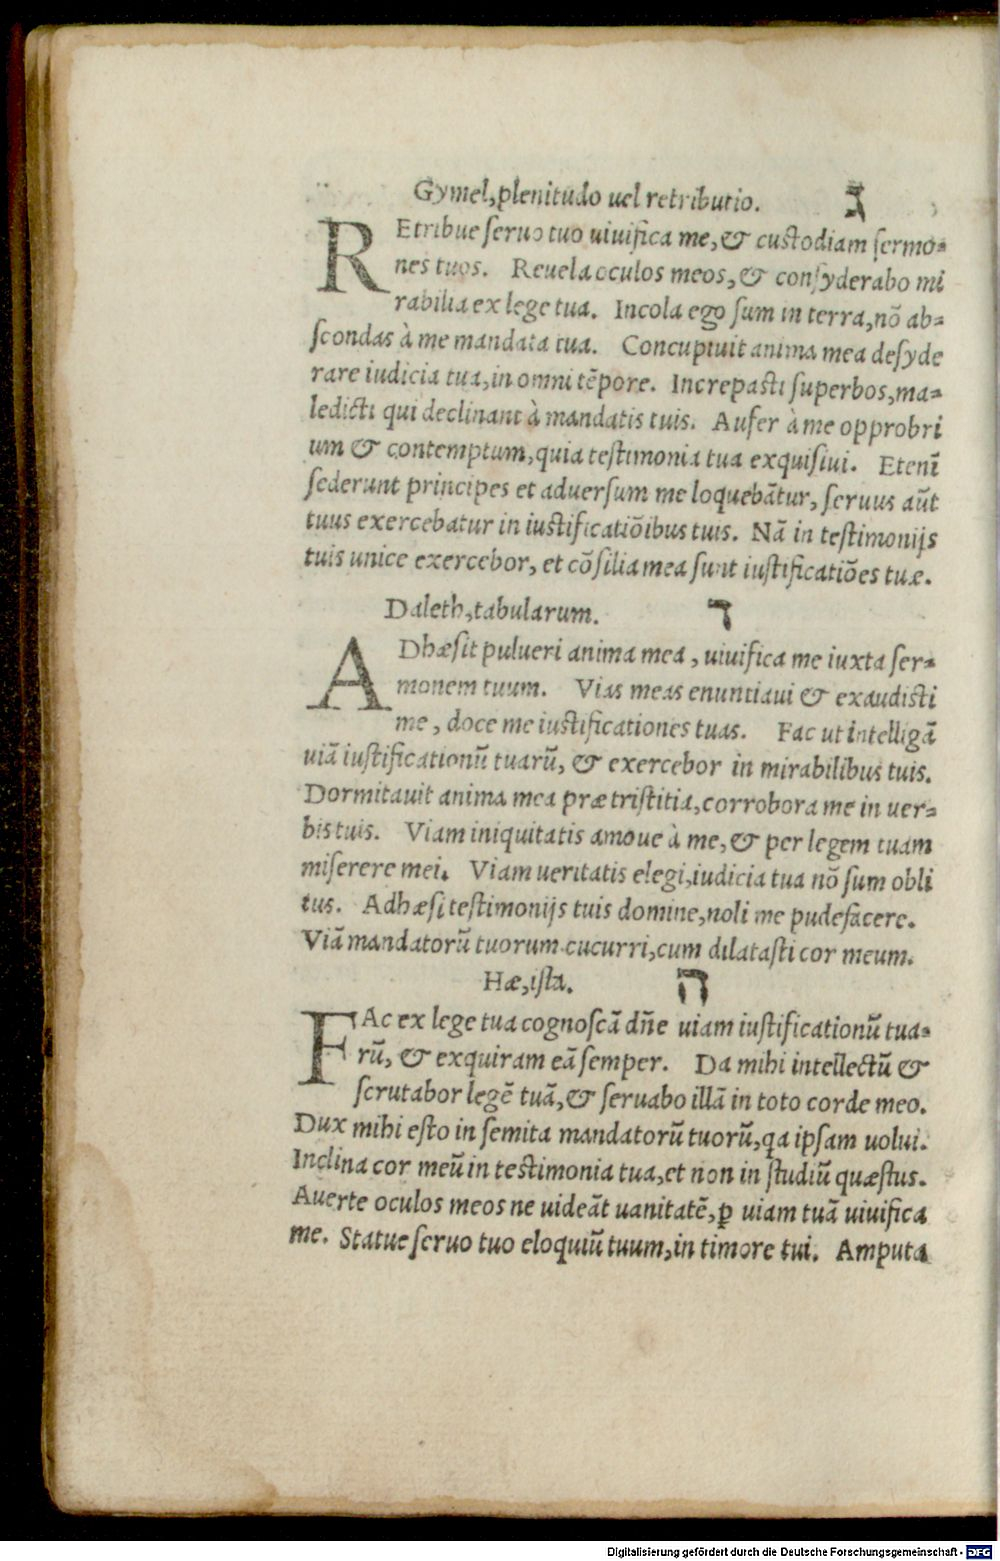 Gymel, plenitudo uel retributio. ג
REtribue seruo tuo uiuifica me, & custodiam sermo=
nes tuos. Reuela oculos meos, & consyderabo mi
rabilia ex lege tua. Incola ego sum in terra, nō ab=
scondas à me mandata tua. Concupiuit anima mea desyde
rare iudicia tua, in omni tēpore. Increpasti superbos, ma=
ledicti qui declinant à mandatis tuis. Aufer à me opprobri
um & contemptum, quia testimonia tua exquisiui. Etenī
sederunt principes et aduersum me loquebātur, seruus aūt
tuus exercebatur in iustificatiōibus tuis. Nā in testimonijs
tuis unice exercebor, et cōsilia mea sunt iustificatiōes tuæ.
Daleth, tabularum. ד
ADhæsit pulueri anima mea, uiuifica me iuxta ser=
monem tuum. Vias meas enuntiaui & exaudisti
me, doce me iustificationes tuas. Fac ut intelligā
uiā iustificationū tuarū, & exercebor in mirabilibus tuis.
Dormitauit anima mea præ tristitia, corrobora me in uer=
bis tuis. Viam iniquitatis amoue à me, & per legem tuam
miserere mei. Viam ueritatis elegi, iudicia tua nō sum obli
tus. Adhæsi testimonijs tuis domine, noli me pudefacere.
Viā mandatorū tuorum cucurri, cum dilatasti cor meum.
Hæ, ista. ה
FAc ex lege tua cognoscā dn̄e uiam iustificationū tua=
rū, & exquiram eā semper. Da mihi intellectū &
scrutabor legē tuā, & seruabo illā in toto corde meo.
Dux mihi esto in semita mandatorū tuorū, qa ipsam uolui.
Inclina cor meū in testimonia tua, et non in studiū quæstus.
Auerte oculos meos ne uideāt uanitatē, ꝑ uiam tuā uiuifica
me. Statue seruo tuo eloquiū tuum, in timore tui. Amputa
Digitalisierung gefördert durch die Deutsche Forschungsgemeinschaft - DFG